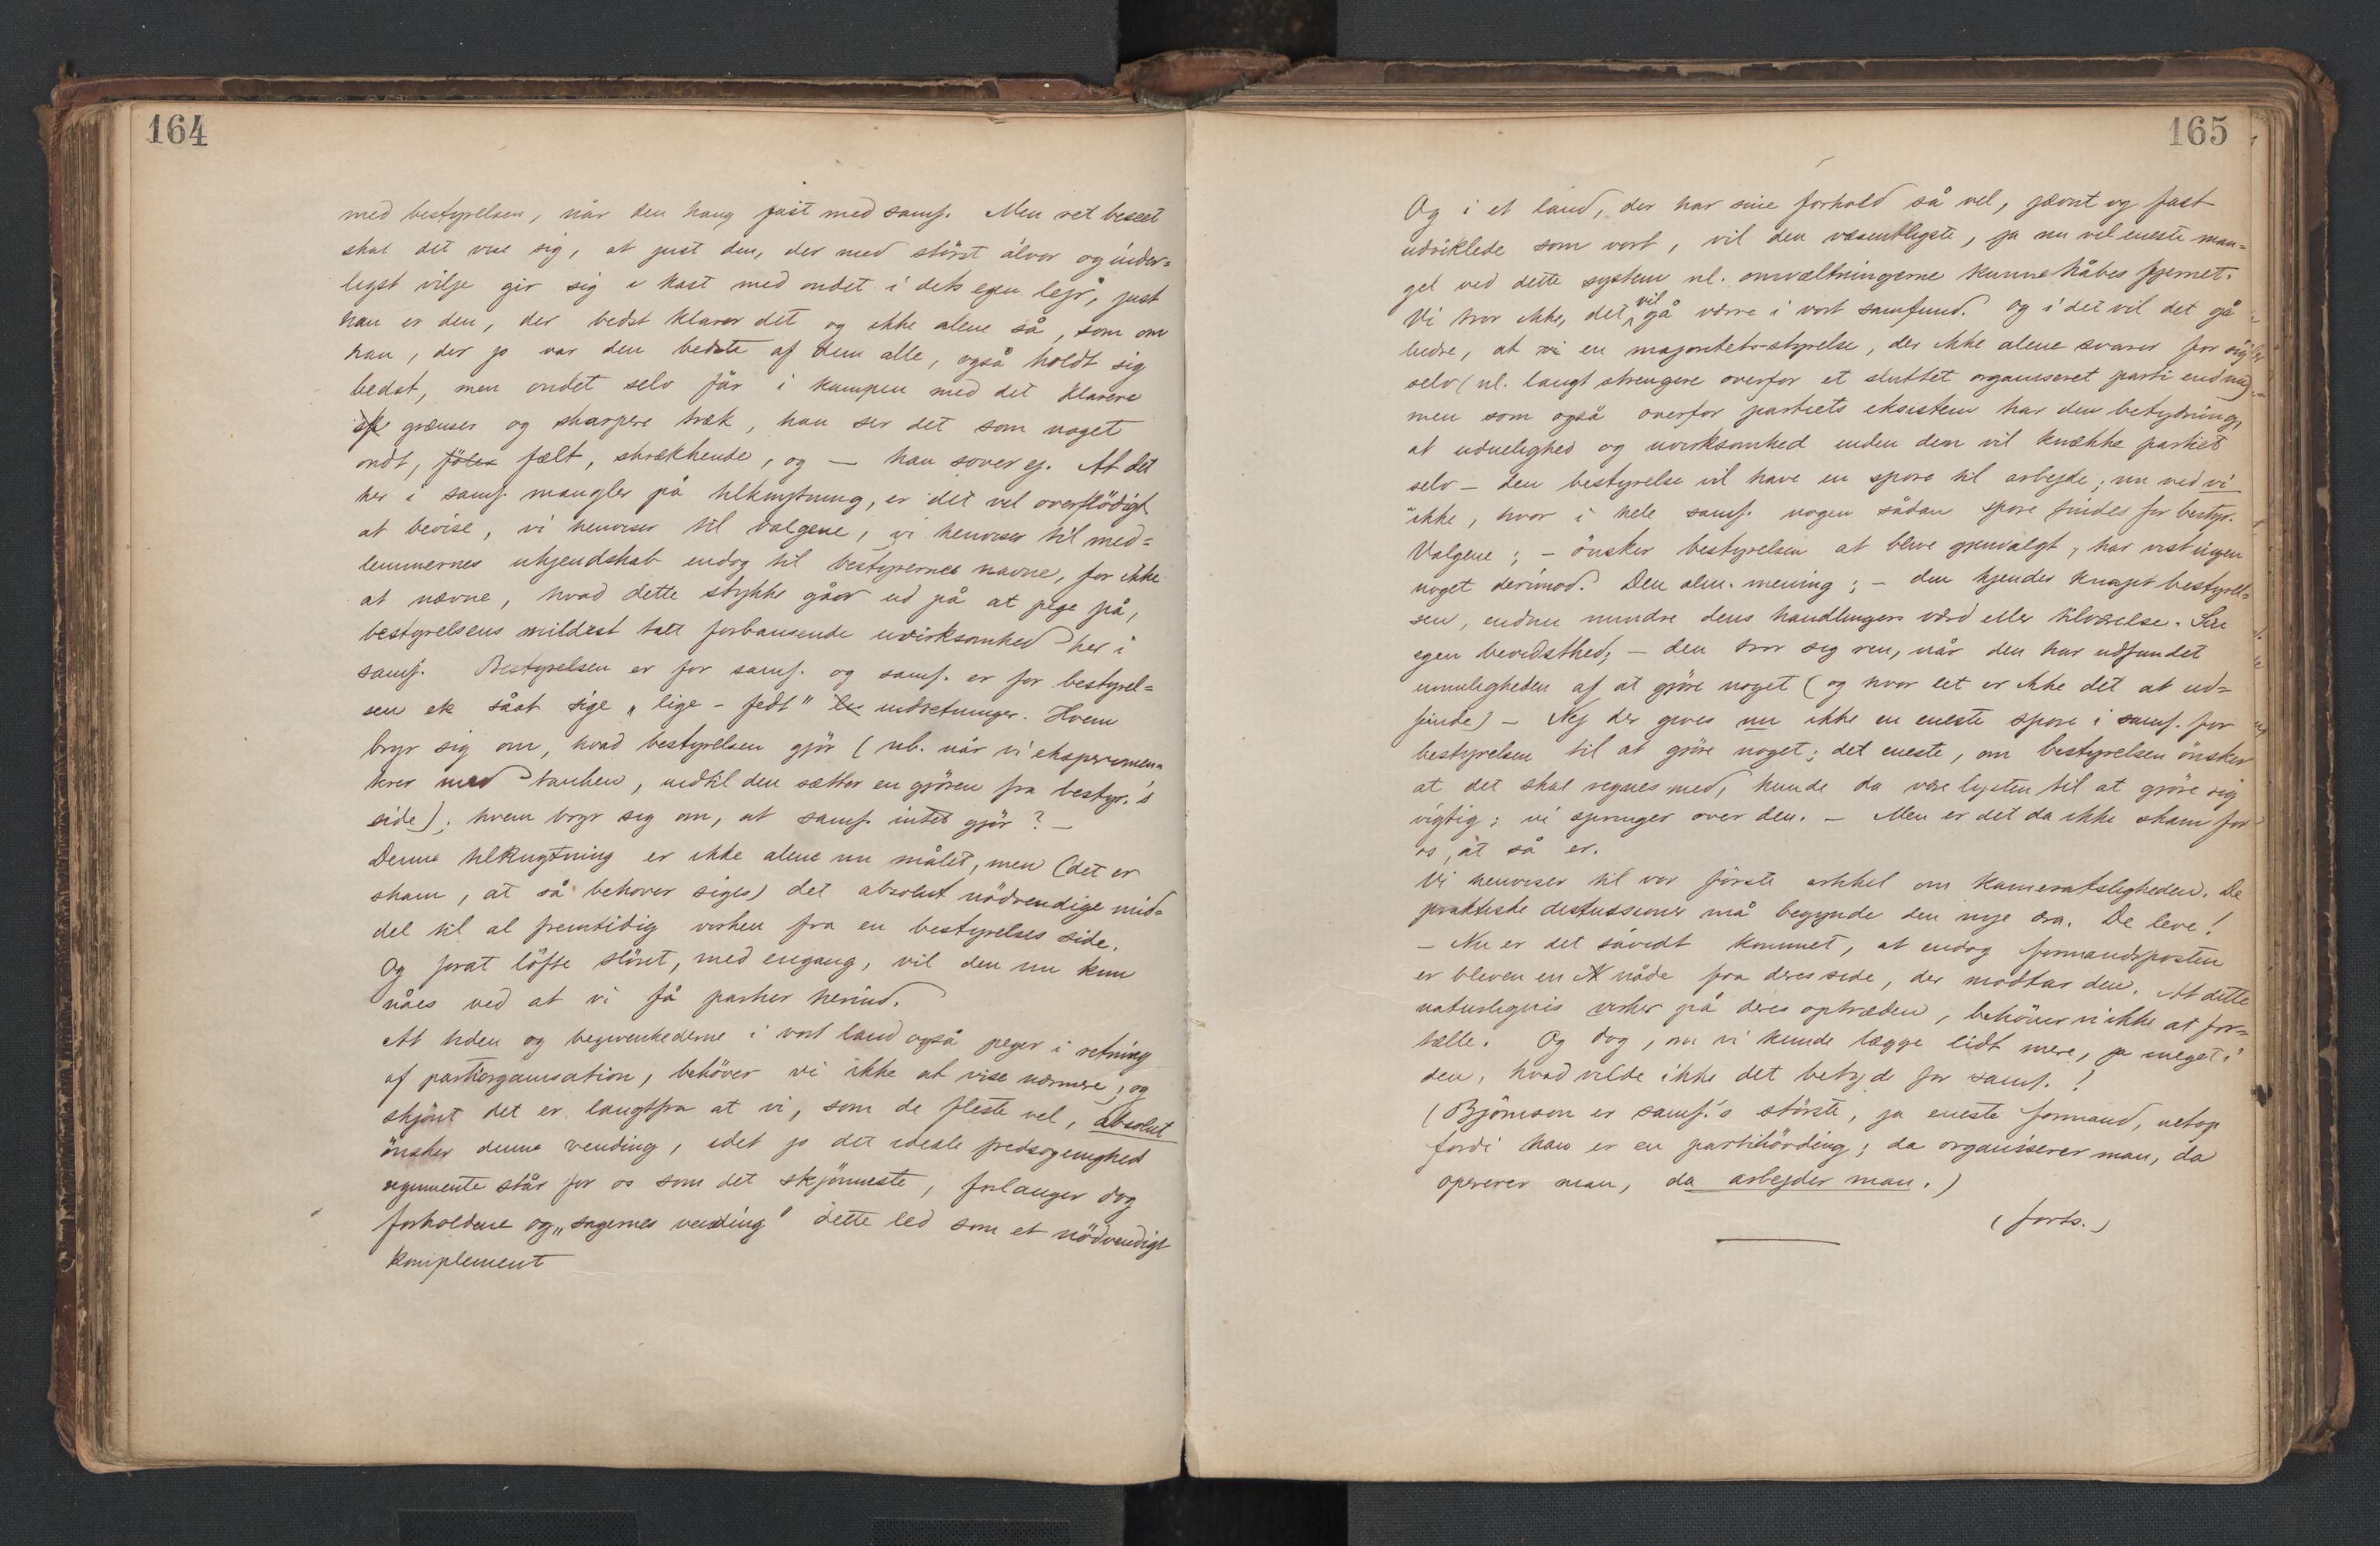 164
med bestyrelsen, når den hang fast med samf. Men ret beseet
skal det vise sig, at just den, der med störst alvor og inder=
ligst vilje gir sig i kast med ondet i dets egen lejr, just
han er den, der bedst klarer det og ikke alene så, som om
han, der jo var den bedste af dem alle, også holdt sig
bedst, men ondet selv får i kampen med det klarere
grænser og skarpere træk, han ser det som noget
ondt, föler fælt, skrækkende, og — han sover ej. At det
her i samf. mangler på tilknytning, er det vel overflödigt
at bevise, vi henviser til valgene, vi henviser til med=
lemmernes ukjendskab endog til bestyrernes navne, for ikke
at nævne, hvad dette stykke gåer ud på at pege på,
bestyrelsens mildest talt forbausende uvirksomhed her i
samf. Bestyrelsen er for samf. og samf. er for bestyrel=
sen så at sige „lige-fedt" indretninger. Hvem
bryr sig om, hvad bestyrelsen gjör (nb. når vi eksperimen=
terer med tanken, indtil den sætter en gjören fra bestyr.'s
side); hvem bryr sig om, at samf. intet gjör? —
Denne tilknytning er ikke alene nu målet, men (det er
skam, at så behover siges) det absolut nödvendige mid=
del til al fremtidig virken fra en bestyrelses side.
Og forat löfte slöret, med engang, vil den nu kun
nåes ved at vi få partier herind.
At tiden og begivenhederne i vort land også peger i retning
af partiorganisation, behöver vi ikke at vise nærmere, og
skjönt det er langtfra at vi, som de fleste vel, absolut
önsker denne vending, idet jo det ideale fredsogenighed
regimente står for os som det skjönneste, forlanger dog
forholdene og „sagernes vending" dette led som et nödvendigt
komplement
165
Og i et land, der har sine forhold så vel, jævnt og fast
udviklede som vort, vil den væsentligste, ja nu vel eneste man=
gel ved dette system nl. omvæltningerne kunne håbes fjernet.
Vi tror ikke, det vil gå værre i vort samfund. Og i det vil det gå
bedre, at vi en majoritets-styrelse, der ikke alene svarer for sig
selv (nl. langt strengere overfor et sluttet organiseret parti end nu)
men som også overfor partiets eksistens har den betydning,
at uduelighed og uvirksomhed inden den vil knække partiet
selv — den bestyrelse vil have en spore til arbejde; nu ved vi
ikke, hvor i hele samf. nogen sådan spore findes for bestyr.
Valgene; — önsker bestyrelsen at blive gjenvalgt, har vist ingen
noget derimod. Den alm. mening; — den kjender knapt bestyrel=
sen, endnu mindre dens handlingers værd eller tilværelse. Sin
egen bevidsthed; — den tror sig ren, når den har udfundet
umuligheden af at gjöre noget (og hvor let er ikke det at ud=
finde) — Nej der gives nu ikke en eneste spore i samf. for
bestyrelsen til at gjöre noget; det eneste, om bestyrelsen önsker
at det skal regnes med, kunde da være lysten til at gjöre sig
vigtig; vi springer over den. — Men er det da ikke skam for
os, at så er.
Vi henviser til vor förste artikel om kameratsligheden. De
praktiske diskussioner må begynde den nye æra. De leve!
— Nu er det såvidt kommet, at endog formandsposten
er bleven en nåde fra deres side, der modtar den. At dette
naturligvis virker på deres optræden, behöver vi ikke at for=
tælle. Og dog, om vi kunde lægge lidt mere, ja meget i
den, hvad vilde ikke det betyde for samf.!
(Björnson er samf.'s störste, ja eneste formand, netop
fordi han er en partihövding; da organiserer man, da
opererer man, da arbejder man.)
(forts.)